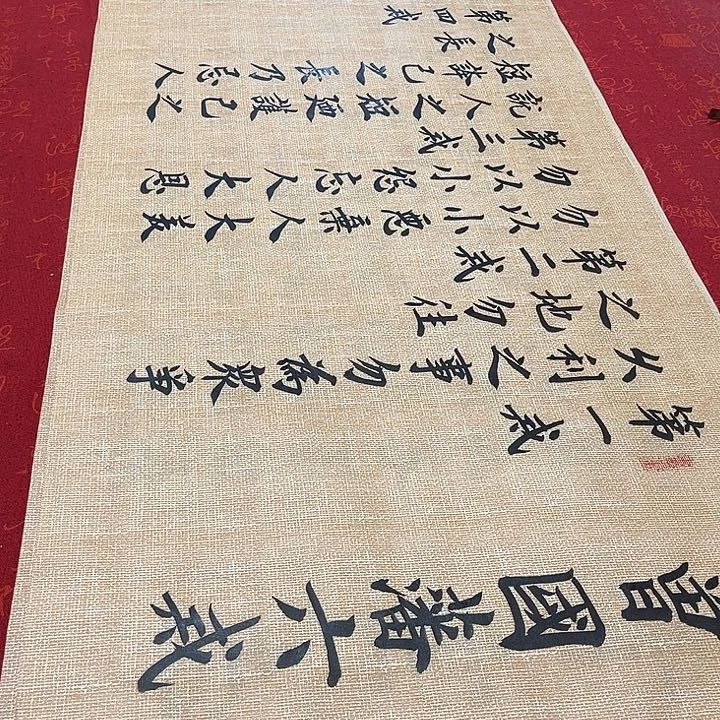 曾國藩六戒
第一戒
久利之事勿為眾爭
之地勿往
第二戒
勿以小惡棄人大美
勿以小怨忘人大恩
第三戒
說人之短廼護己之
短誇己之長乃忌人
之長
第四戒